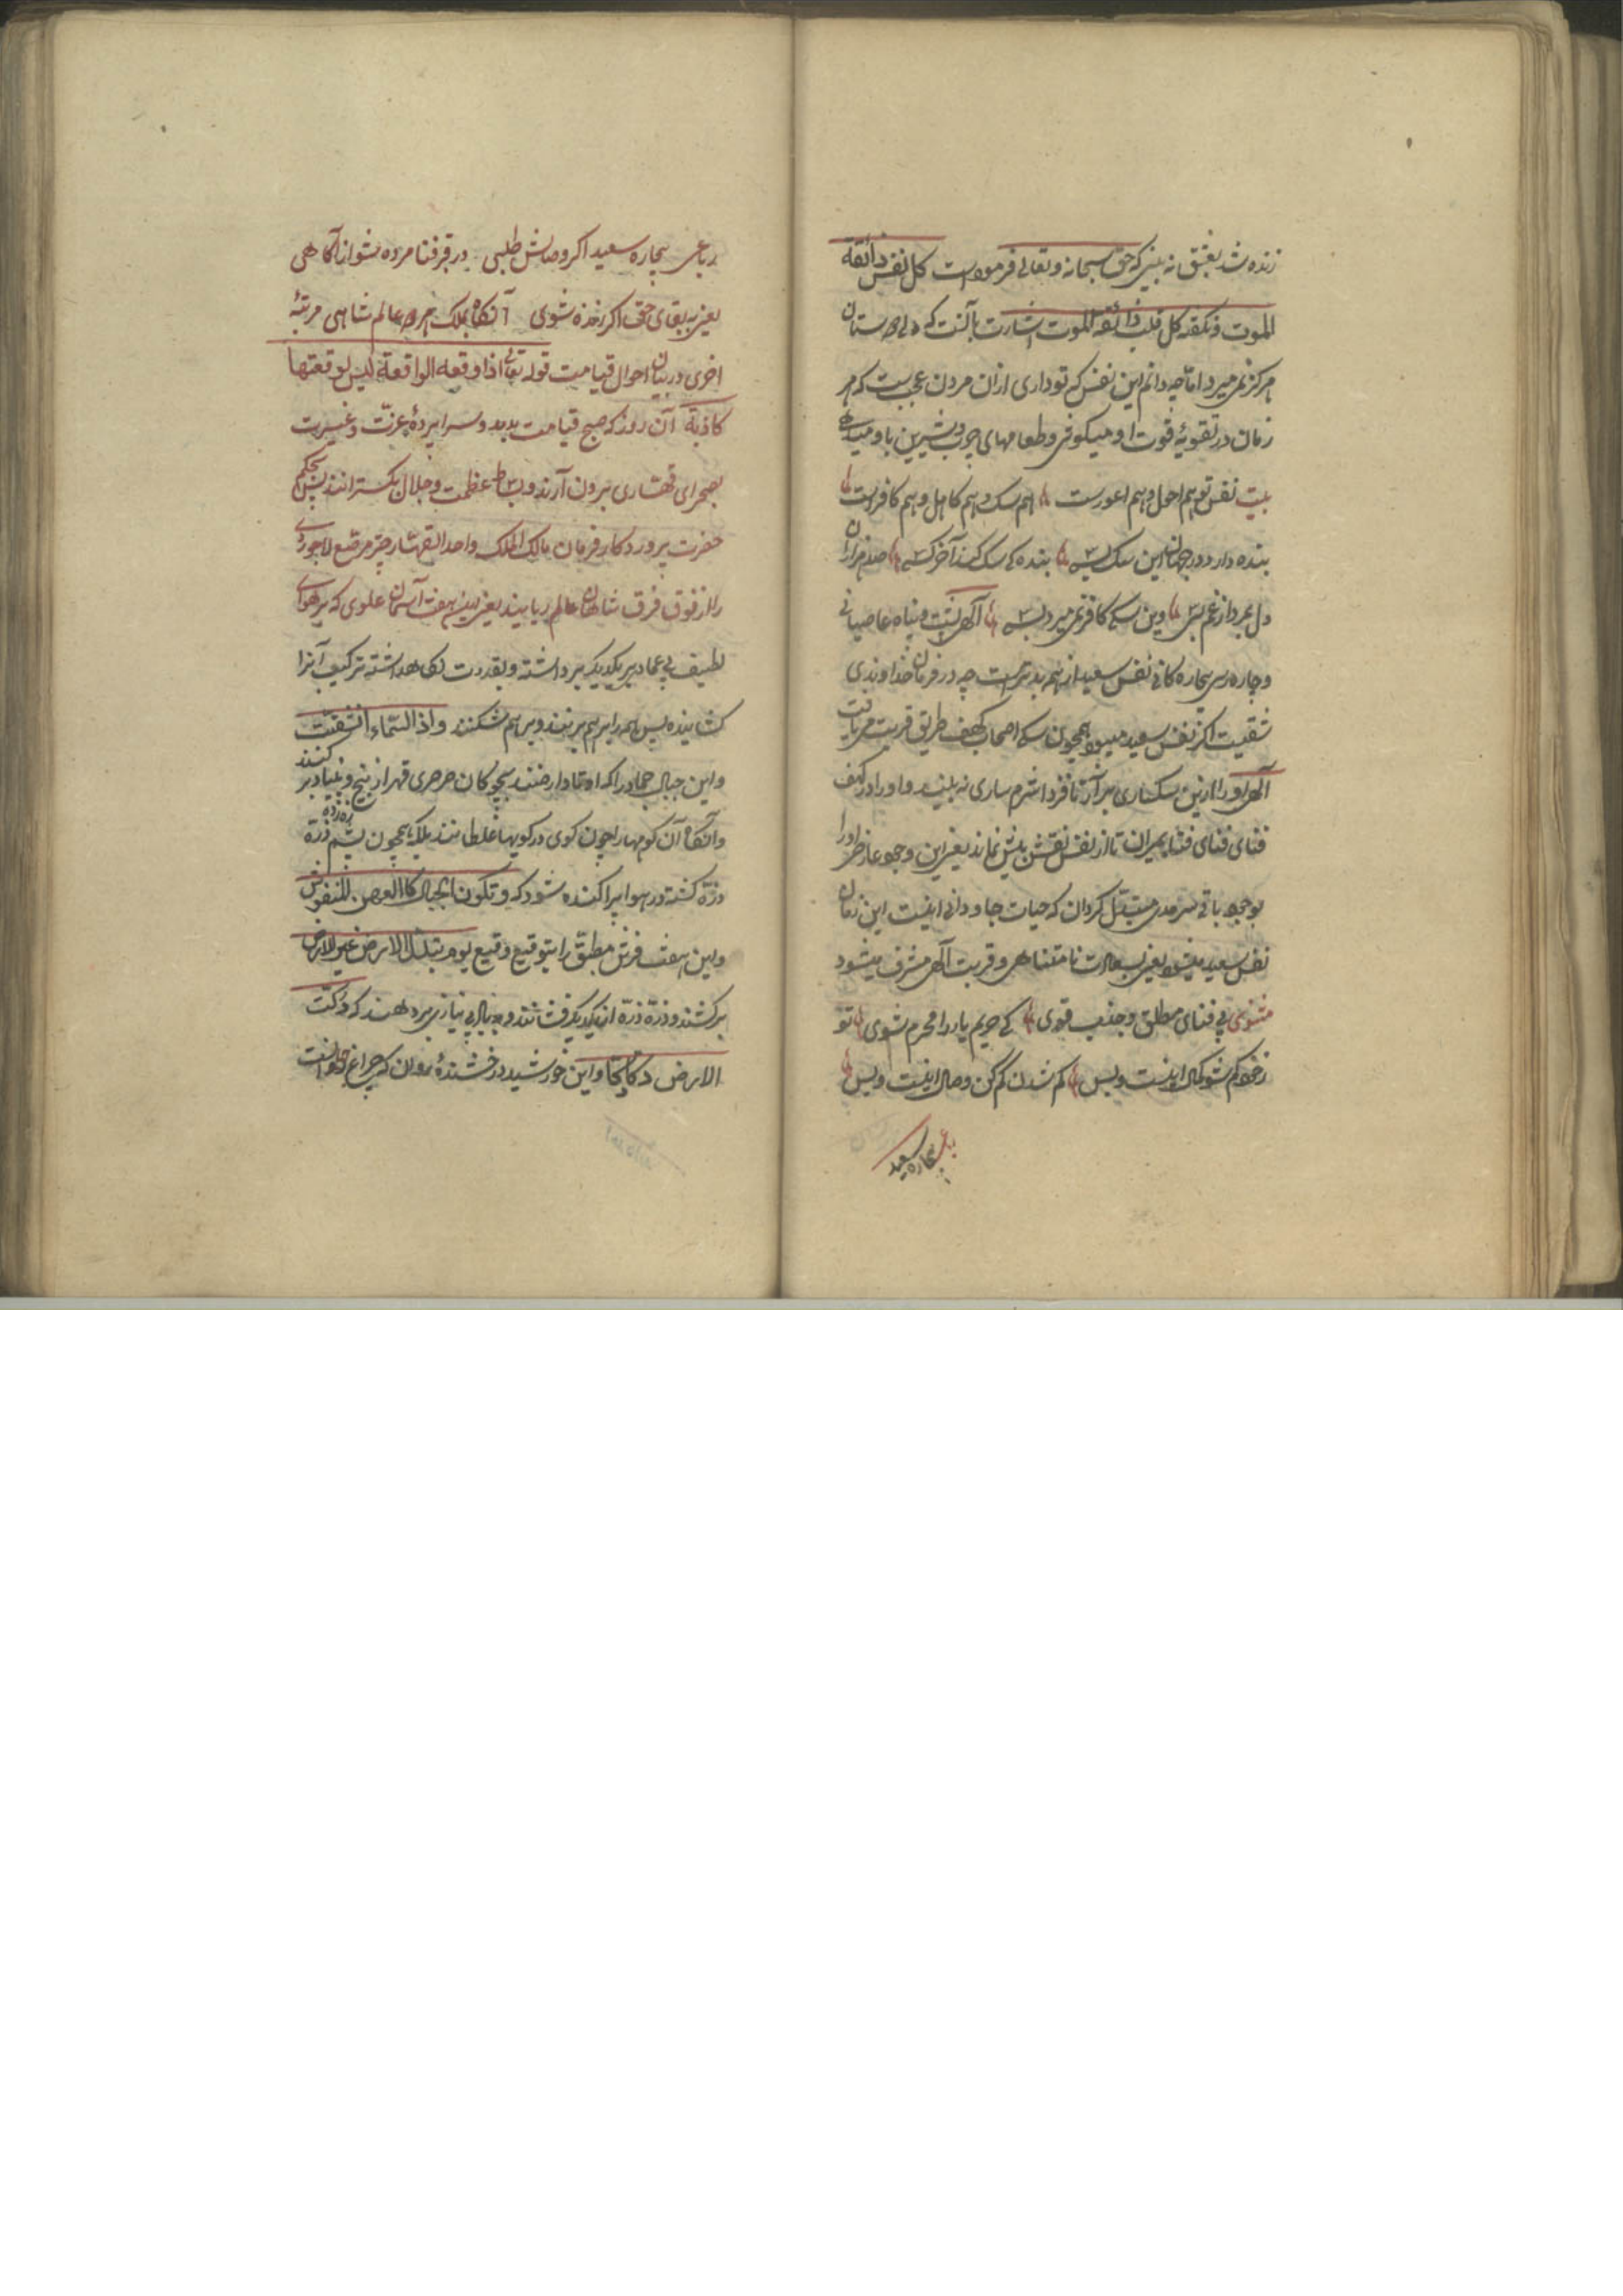 زنده شد بعشق نه بینی که حق سبحانه وتعالی فرموده است کل نفس ذائقة
الموت ونگفته کل قلب ذائقة الموت اشارت بآنست که دل دوستان
هرگز نمی میرد اما چه دانم این نفس که تو داری ازان مردن عجبست که هر
زمان در تقویهٔ قوت او میکوشی وطعامهای چرب وشیرین باو میدهی
بیت نفس تو هم احول وهم اعورست هم سک وهم کاهل وهم کافرست
بنده دارد در جهان این سک بسی بنده کی سک کند آخر کسی صد هزاران
دل بمرد از غم بسی وین سک کافر نمی میرد بسی آلهی پشت وپناه عاصیانی
وچاره رس بیچاره کانی نفس سعید از همه بدترست چه در فرمان خداوندی
نفس سعید همچون سک اصحاب کهف طریق قربت می یافت
آلهی اورا ازین سکساری برآر تا فردا شرم ساری نه بیند واورا در کهف
فنای فنای فنا بمیران تا از نفس نقش بدیش نماند یعنی این وجود عارضی اورا
بوجود باقی سرمدی مبدل کردان که حیات جاودانی اینست این زمان
نفس سعید میشود یعنی بسعادت نامتناهی وقربت آلهی مشرف میشود
مثنوی بی فنای مطلق وجذب قوی کی حریم یار را محرم شوی تو
زخود کم شو کمال اینست وبس کم شدن کم کن وصال اینست وبس
رباعی بیچاره سعید
رباعی بیچاره سعید اکر وصالش طلبی در قبر فنا مرده شو از آکاهی
یعنی به بقای حق اکر زنده شوی آنکاه بملک هر دو عالم شاهی مرتبهٔ
اخری در بیان احوال قیامت قوله تعالی اذا وقعة الواقعة لیس لوقعتها
کاذبة آن روز که صبح قیامت بدمد وسراپردهٔ عزت وغیرت
بصحرای قهاری بیرون آرند وبساط عظمت وجلال بکسترانند پس بحکم
حضرت پروردکار فرمان مالک الملک واحد القهار چتر مرصع لاجوردی
را از فوق فرق شاهان عالم ربایند یعنی این هفت آسمان علوی که بر هوای
لطیف بی عماد بر یکدیکر برداشته وبقدرت نکاهداشته ترکیب آنرا
کشاینده پس همه را بر هم بزنند وبر هم شکنند واذ السماء انشقت
واین جبال جماد را که اوتاد ارضند بچوکان صرصری قهر از بیخ وبنیاد بر کنند
وانکاه آن کوهها را چون کوی در کویها غلطانند بلکه همچون پشم زده زده ذرّه
ذرّه کشته در هوا پراکنده شود که وتکون الجبال کالعهن المنفوش
واین هفت فرش مطبق را بتوقیع وقیع یوم تبدل الارض غیر الارض
برکشند وذره ذره از یکدیکر فشانند وبباد بی نیازی بر دهند که دکت
الارض دکا دکا واین خورشید درخشندهٔ روان که چراغ